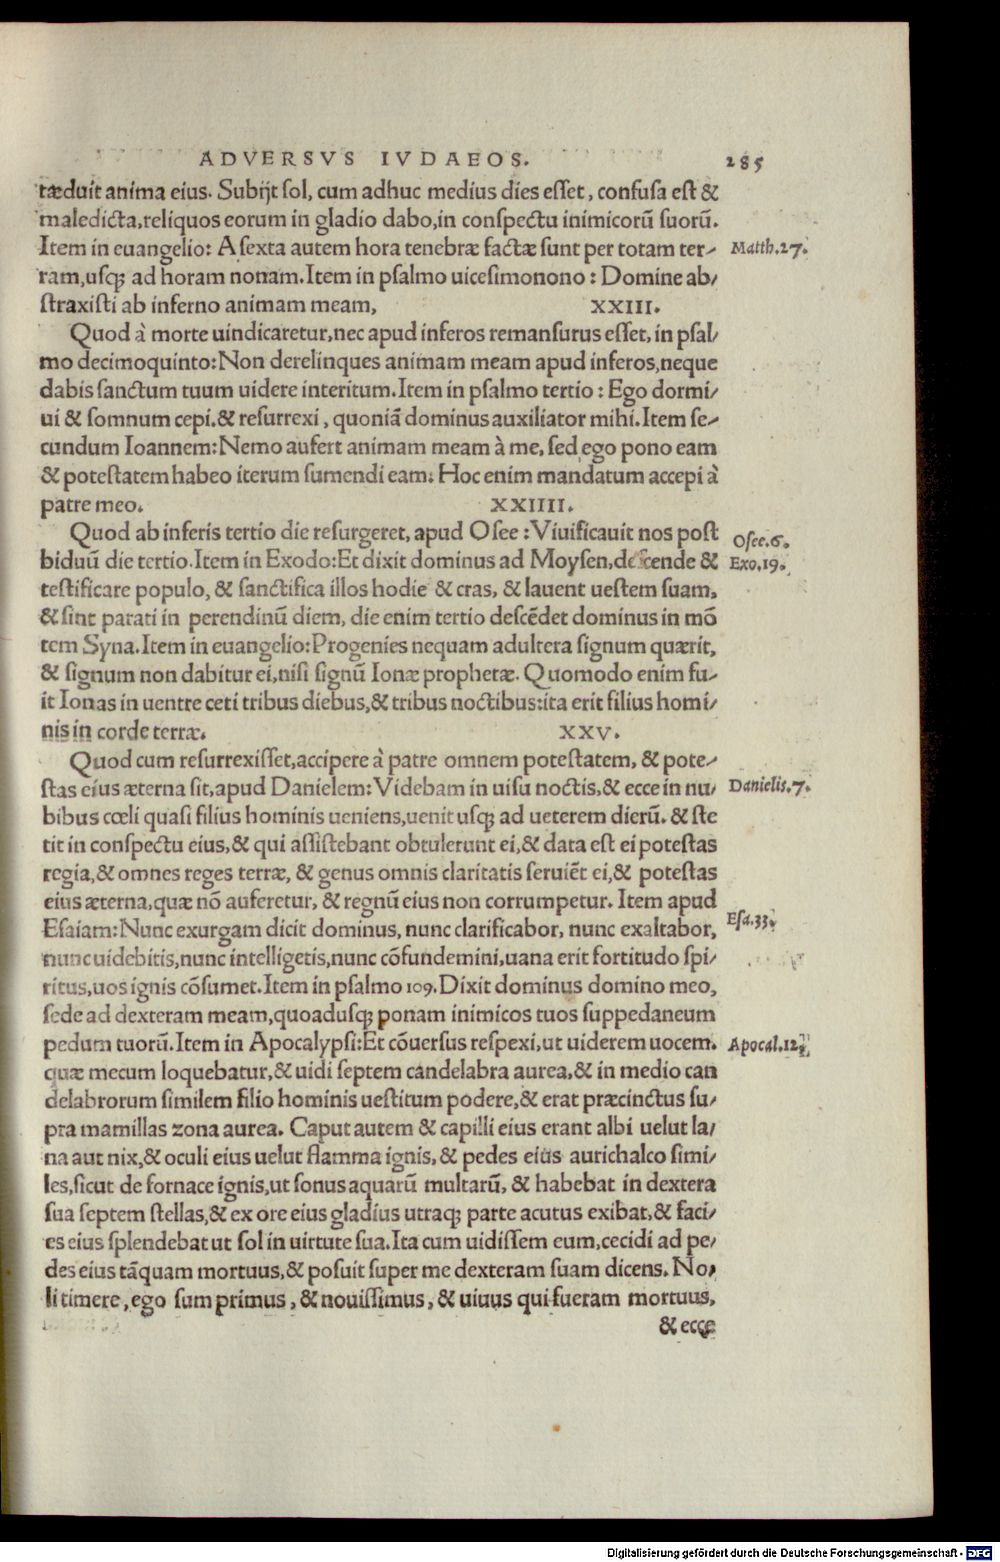 ADVERSVS IVDAEOS. 285
tæduit anima eius. Subijt sol, cum adhuc medius dies esset, confusa est &
maledicta, reliquos eorum in gladio dabo, in conspectu inimicorū suorū.
Item in euangelio: A sexta autem hora tenebræ factæ sunt per totam ter- Matth.27.
ram, usq; ad horam nonam. Item in psalmo uicesimonono: Domine ab-
straxisti ab inferno animam meam, XXIII.
Quod à morte uindicaretur, nec apud inferos remansurus esset, in psal-
mo decimoquinto: Non derelinques animam meam apud inferos, neque
dabis sanctum tuum uidere interitum. Item in psalmo tertio: Ego dormi-
ui & somnum cepi. & resurrexi, quoniā dominus auxiliator mihi. Item se-
cundum Ioannem: Nemo aufert animam meam à me, sed ego pono eam
& potestatem habeo iterum sumendi eam. Hoc enim mandatum accepi à
patre meo. XXIIII.
Quod ab inferis tertio die resurgeret, apud Osee: Viuificauit nos post Osee.6.
biduū die tertio. Item in Exodo: Et dixit dominus ad Moysen, descende & Exo.19.
testificare populo, & sanctifica illos hodie & cras, & lauent uestem suam,
& sint parati in perendinū diem, die enim tertio descēdet dominus in mō
tem Syna. Item in euangelio: Progenies nequam adultera signum quærit,
& signum non dabitur ei, nisi signū Ionæ prophetæ. Quomodo enim fu-
it Ionas in uentre ceti tribus diebus, & tribus noctibus: ita erit filius homi-
nis in corde terræ. XXV.
Quod cum resurrexisset, accipere à patre omnem potestatem, & pote-
stas eius æterna sit, apud Danielem: Videbam in uisu noctis, & ecce in nu- Danielis.7.
bibus cœli quasi filius hominis ueniens, uenit usq; ad ueterem dierū. & ste
tit in conspectu eius, & qui assistebant obtulerunt ei, & data est ei potestas
regia, & omnes reges terræ, & genus omnis claritatis seruiēt ei, & potestas
eius æterna, quæ nō auferetur, & regnū eius non corrumpetur. Item apud
Esaiam: Nunc exurgam dicit dominus, nunc clarificabor, nunc exaltabor, Esa.33.
nunc uidebitis, nunc intelligetis, nunc cōfundemini, uana erit fortitudo spi-
ritus, uos ignis cōsumet. Item in psalmo 109. Dixit dominus domino meo,
sede ad dexteram meam, quoadusq; ponam inimicos tuos suppedaneum
pedum tuorū. Item in Apocalypsi: Et cōuersus respexi, ut uiderem uocem. Apocal.
quæ mecum loquebatur, & uidi septem candelabra aurea, & in medio can
delabrorum similem filio hominis uestitum podere, & erat præcinctus su-
pra mamillas zona aurea. Caput autem & capilli eius erant albi uelut la-
na aut nix, & oculi eius uelut flamma ignis, & pedes eius aurichalco simi-
les, sicut de fornace ignis, ut sonus aquarū multarū, & habebat in dextera
sua septem stellas, & ex ore eius gladius utraq; parte acutus exibat, & faci-
es eius splendebat ut sol in uirtute sua. Ita cum uidissem eum, cecidi ad pe-
des eius tāquam mortuus, & posuit super me dexteram suam dicens. No-
li timere, ego sum primus, & nouissimus, & uiuus qui fueram mortuus,
& ecce
Digitalisierung gefördert durch die Deutsche Forschungsgemeinschaft - DFG